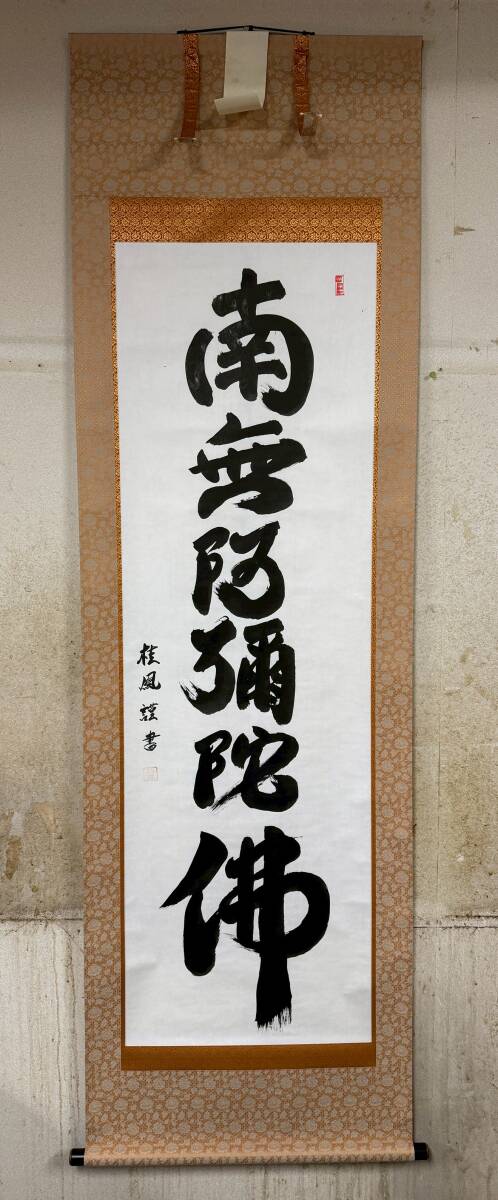 南無阿彌陀佛
桂風謹書